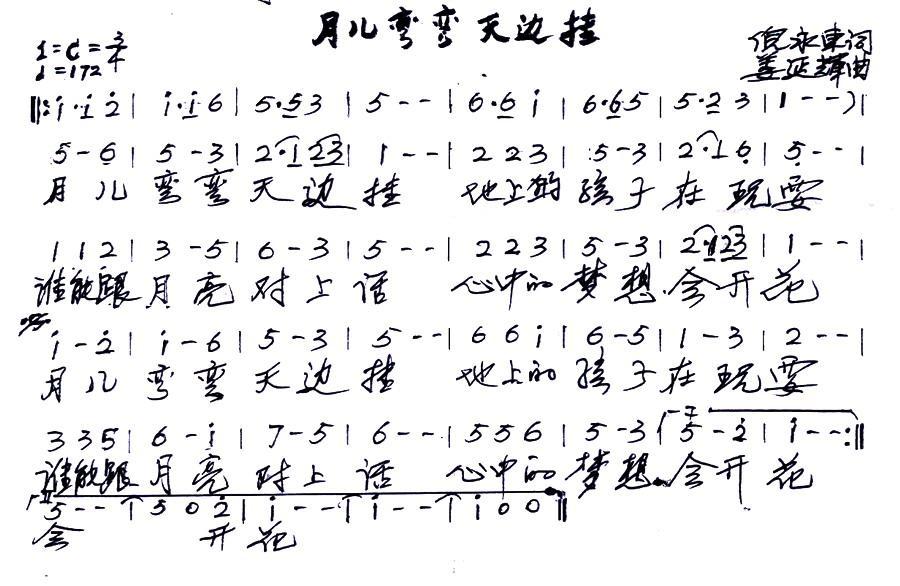 月儿弯弯天边挂
1=C=3/4
♩=172
倪永东词
姜延辉曲
‖: i·i 2̇ | i·i 6 | 5·5 3 | 5 - - | 6·6 i | 6·6 5 | 5·2 3 | 1 - -) |
5 - 6 | 5 - 3 | 2·1 2 3 | 1 - - | 2 2 3 | 5 - 3 | 2·1 6̣ | 5̣ - - |
月儿弯弯天边挂 地上的孩子在玩耍
1 1 2 | 3 - 5 | 6 - 3 | 5 - - | 2 2 3 | 5 - 3 | 2·1 2 3 | 1 - - |
谁能跟月亮对上话 心中的梦想会开花
i - 2̇ | i - 6 | 5 - 3 | 5 - - | 6 6 i | 6 - 5 | 1 - 3 | 2 - - |
月儿弯弯天边挂 地上的孩子在玩耍
3 3 5 | 6 - i | 7 - 5 | 6 - - | 5 5 6 | 5 - 3 | 5 - 2̇ | i - - :‖
谁能跟月亮对上话 心中的梦想会开花
5 - - | 5 0 2̇ | i - - | i - - | i 0 0 ‖
会 开花